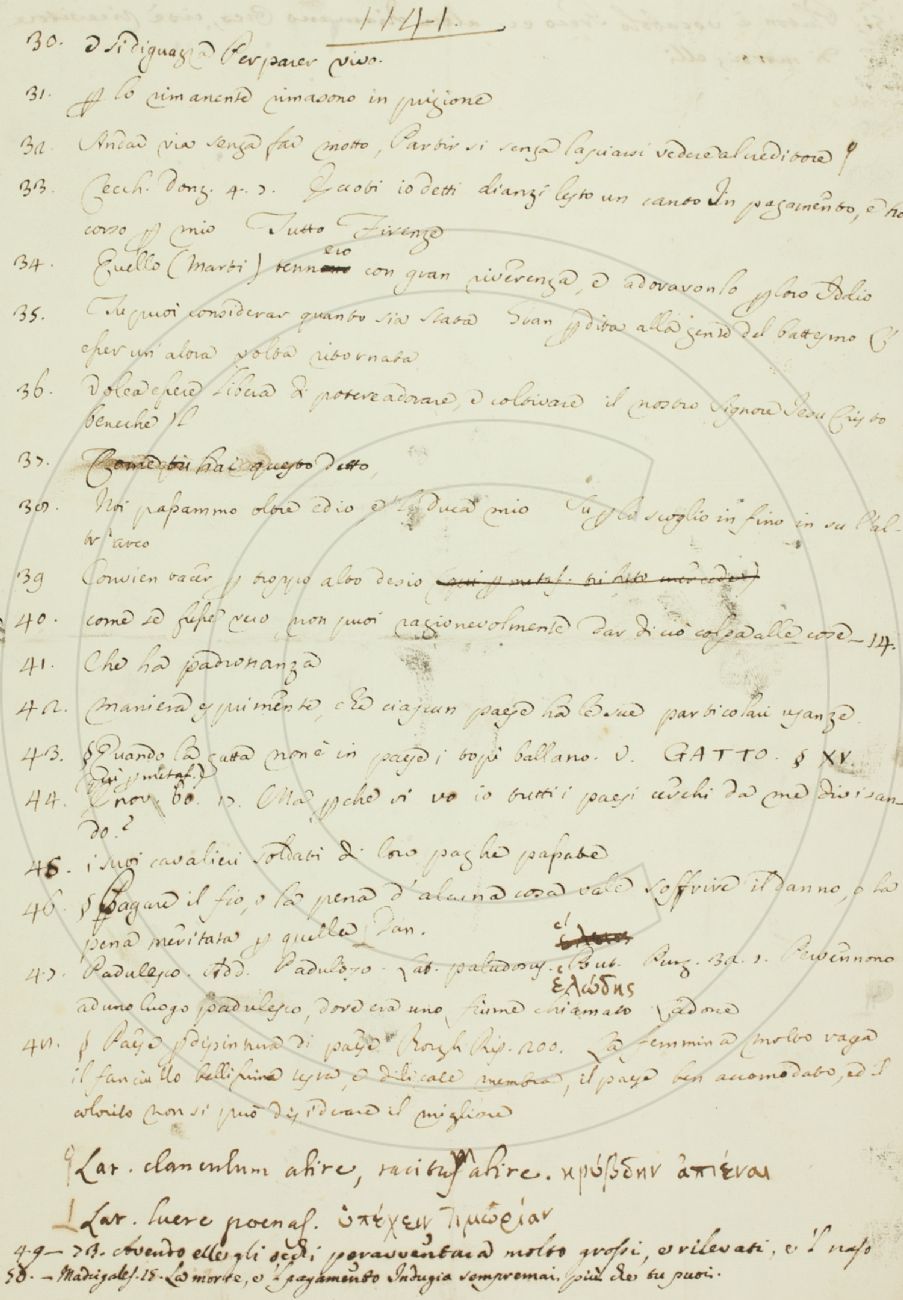 1141.
30. e si diguazza Per parer vivo.
31. ꝑ lo rimanente rimasono in prigione
32. Andar via senza far motto, Partirsi senza lasciarsi vedere al creditore
33. Cecch. Donz. 4. 7. Eccoti io detti dianzi lesto un canto In pagamento, e ho
corso ꝑ mio Tutto Firenze
34. Quello (Marti) tennero con gran riverenza, e adoravonlo ꝑ loro Iddio
35. Tu puoi considerar quanto sia stata Gran ꝑdita alla gente del battesmo E
esser un'altra volta ritornata
36. Volea essere libera di potere adorare, e coltivare il nostro Signore Iesu Cristo
benechè Il
37. Come tu hai questo detto,
38. Noi passammo oltre ed io e 'l duca mio Su ꝑ lo scoglio infino in su l'al-
tr'arco
39 Convien tacer ꝑ troppo alto desio
40. come se fusse reio, non puoi ragionevolmente dar di ciò colpa alle cose – 14.
41. Che ha padronanza
42. maniera esprimente, che ciascun paese ha le sue particolari usanze.
43. § Quando la gatta non è in paese i topi ballano. V. GATTO. § XV.
(qui ꝑ metaf.)
44. E nov. 60. 17. Ma ꝑchè vi vo io tutti i paesi cerchi da me divisan-
do?
45. i suoi cavalieri soldati di loro paghe passate
46. § Pagare il fio, o la pena d'alcuna cosa vale soffrire il danno, o la
pena meritata ꝑ quella Dan.
47. Padulesco. Add. Paduloso. Lat. paludosus. ἑλώδης But. Purg. 32. 1. Pervennono
ad uno luogo padulesco, dove era uno fiume chiamato Ladone
48. § Paese ꝑ dipintura di paese. Borgh. Rip. 200. La femmina molto vaga
il fanciullo bellissima testa, e dilicate membra, il paese ben accomodato, ed il
colorito non si può desiderare il migliore
Lat. clanculum abire, tacitus abire. κρύβδην ἀπιέναι
Lat. luere poenas. ὑπέχειν τιμωρίαν
49 – 73. Avendo ellegli occhi peravventura molto grossi, e rilevati, e 'l naso
50. – Madrigales. 15. La morte, e 'l pagamento Indugia sempremai più che tu puoi.